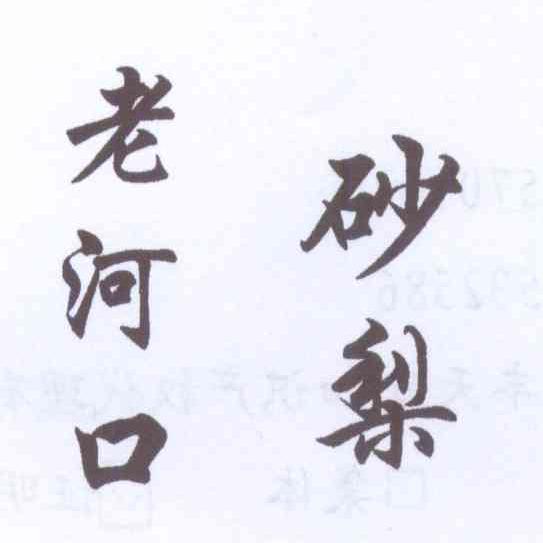 老河口
砂梨